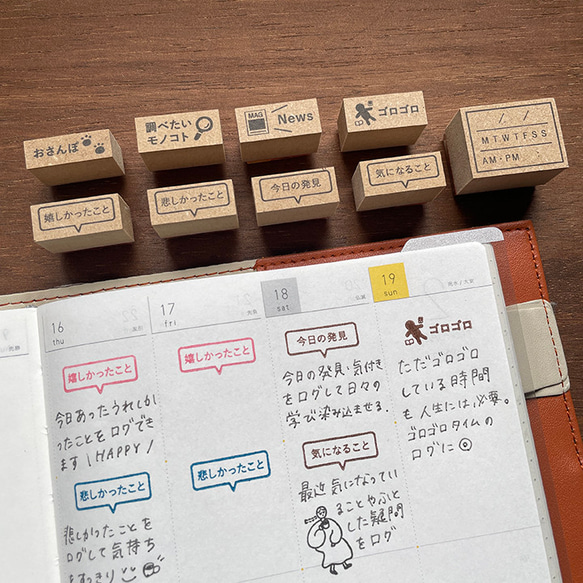 おさんぽ
調べたい
モノコト
MAG
News
ゴロゴロ
M T W T F S S
AM・PM
嬉しかったこと
悲しかったこと
今日の発見
気になること
16
thu
17
fri
18
sat
19
sun
嬉しかったこと
今日あったうれしか
ったことをログでき
ます\HAPPY/
悲しかったこと
悲しかったことを
ログして気持ち
をすっきり
嬉しかったこと
悲しかったこと
今日の発見
今日の発見・気付き
をログして日々の
学び染み込ませる.
気になること
最近気になってい
ることやふと
した疑問
をログ
ゴロゴロ
ただゴロゴロ
している時間
も人生には必要。
ゴロゴロタイムの
ログに